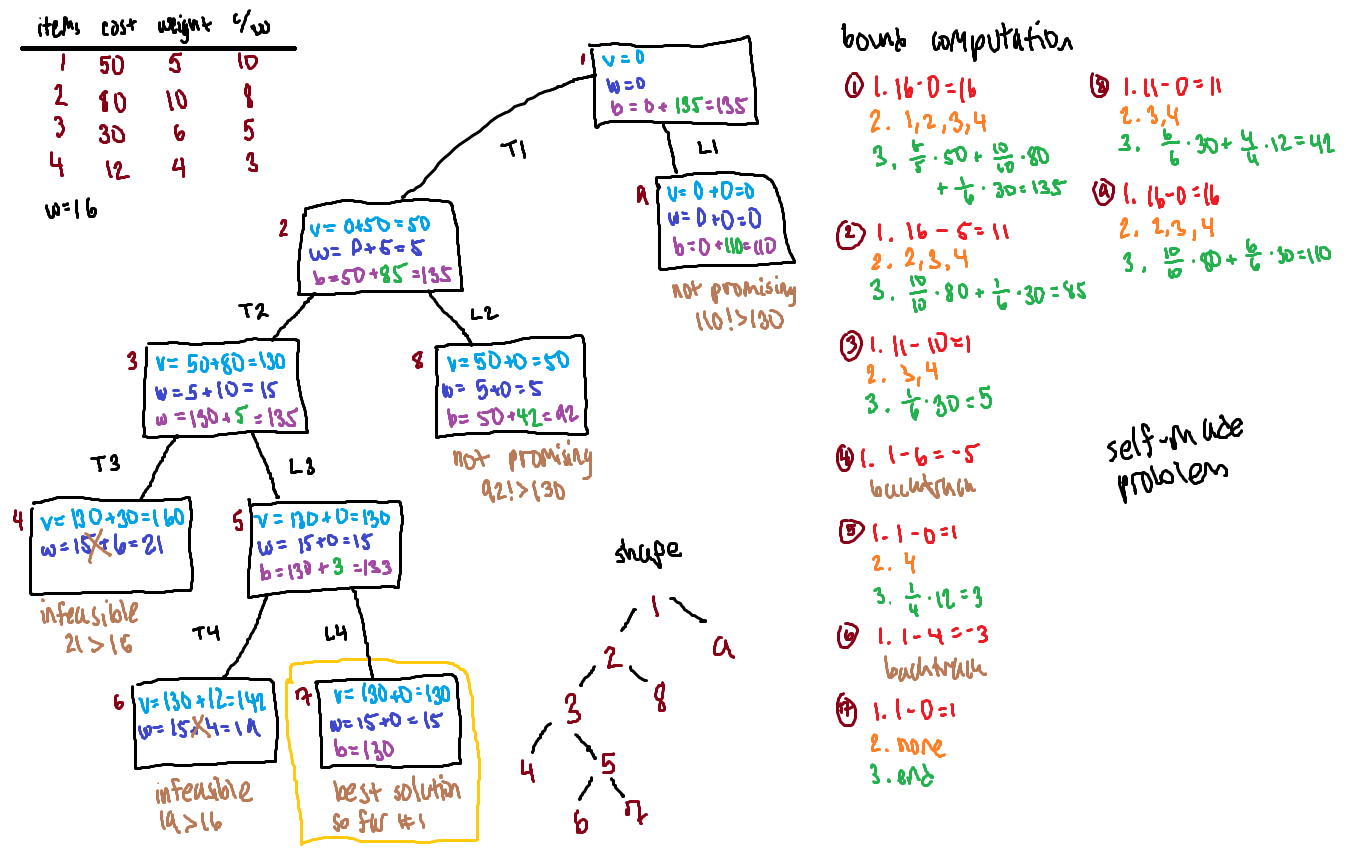 items cost weight c/w
1 50 5 10
2 80 10 8
3 30 6 5
4 12 4 3
w=16
1
v=0
w=0
b=0+135=135
T1
L1
2
v=0+50=50
w=0+5=5
b=50+85=135
9
v=0+0=0
w=0+0=0
b=0+110=110
not promising
110!>130
T2
L2
3
v=50+80=130
w=5+10=15
w=130+5=135
8
v=50+0=50
w=5+0=5
b=50+42=92
not promising
92!>130
T3
L3
4
v=130+30=160
w=15+6=21
infeasible
21>16
5
v=130+0=130
w=15+0=15
b=130+3=133
T4
L4
6
v=130+12=142
w=15+4=19
infeasible
19>16
7
v=130+0=130
w=15+0=15
b=130
best solution
so far #1
shape
1
2 9
3 8
4 5
6 7
bound computation
1 1. 16-0=16
2. 1,2,3,4
3. 5/5·50+10/10·80
+1/6·30=135
2 1. 16-5=11
2. 2,3,4
3. 10/10·80+1/6·30=85
3 1. 11-10=1
2. 3,4
3. 1/6·30=5
4 1. 1-6=-5
backtrack
5 1. 1-0=1
2. 4
3. 1/4·12=3
6 1. 1-4=-3
backtrack
7 1. 1-0=1
2. none
3. end
8 1. 11-0=11
2. 3,4
3. 6/6·30+4/4·12=42
9 1. 16-0=16
2. 2,3,4
3. 10/10·80+6/6·30=110
self-made
problem